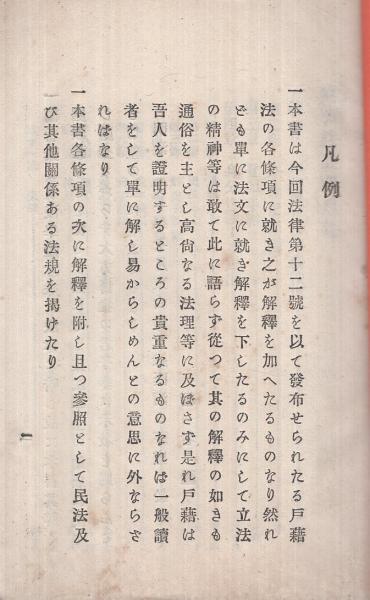 凡例
一本書は今回法律第十二號を以て發布せられたる戸藉
法の各條項に就き之が解釋を加へたるものなり然れ
ども單に法文に就き解釋を下したるのみにして立法
の精神等は敢て此に語らず從つて其の解釋の如きも
通俗を主とし高尙なる法理等に及ぼさず是れ戸藉は
吾人を證明するところの貴重なるものなれば一般讀
者をして單に解し易からしめんとの意思に外ならさ
ればなり
一本書各條項の次に解釋を附し且つ參照として民法及
び其他關係ある法規を揭げたり
一